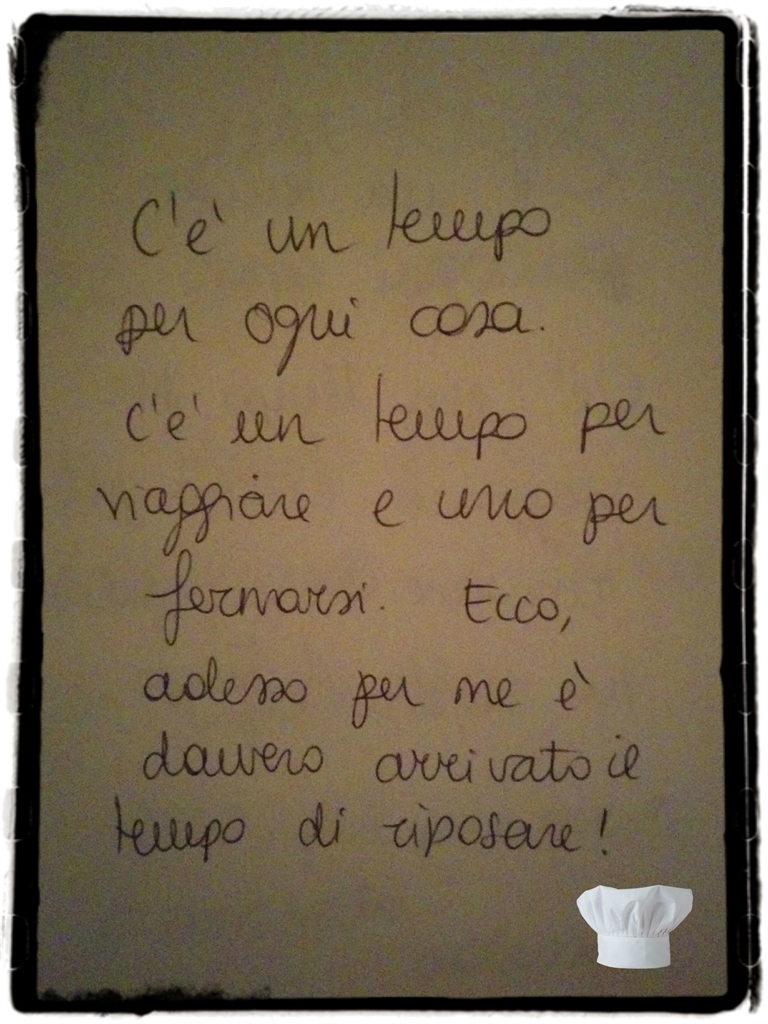 C'e' un tempo
per ogni cosa.
C'e' un tempo per
viaggiare e uno per
fermarsi. Ecco,
adesso per me è
davvero arrivato il
tempo di riposare!